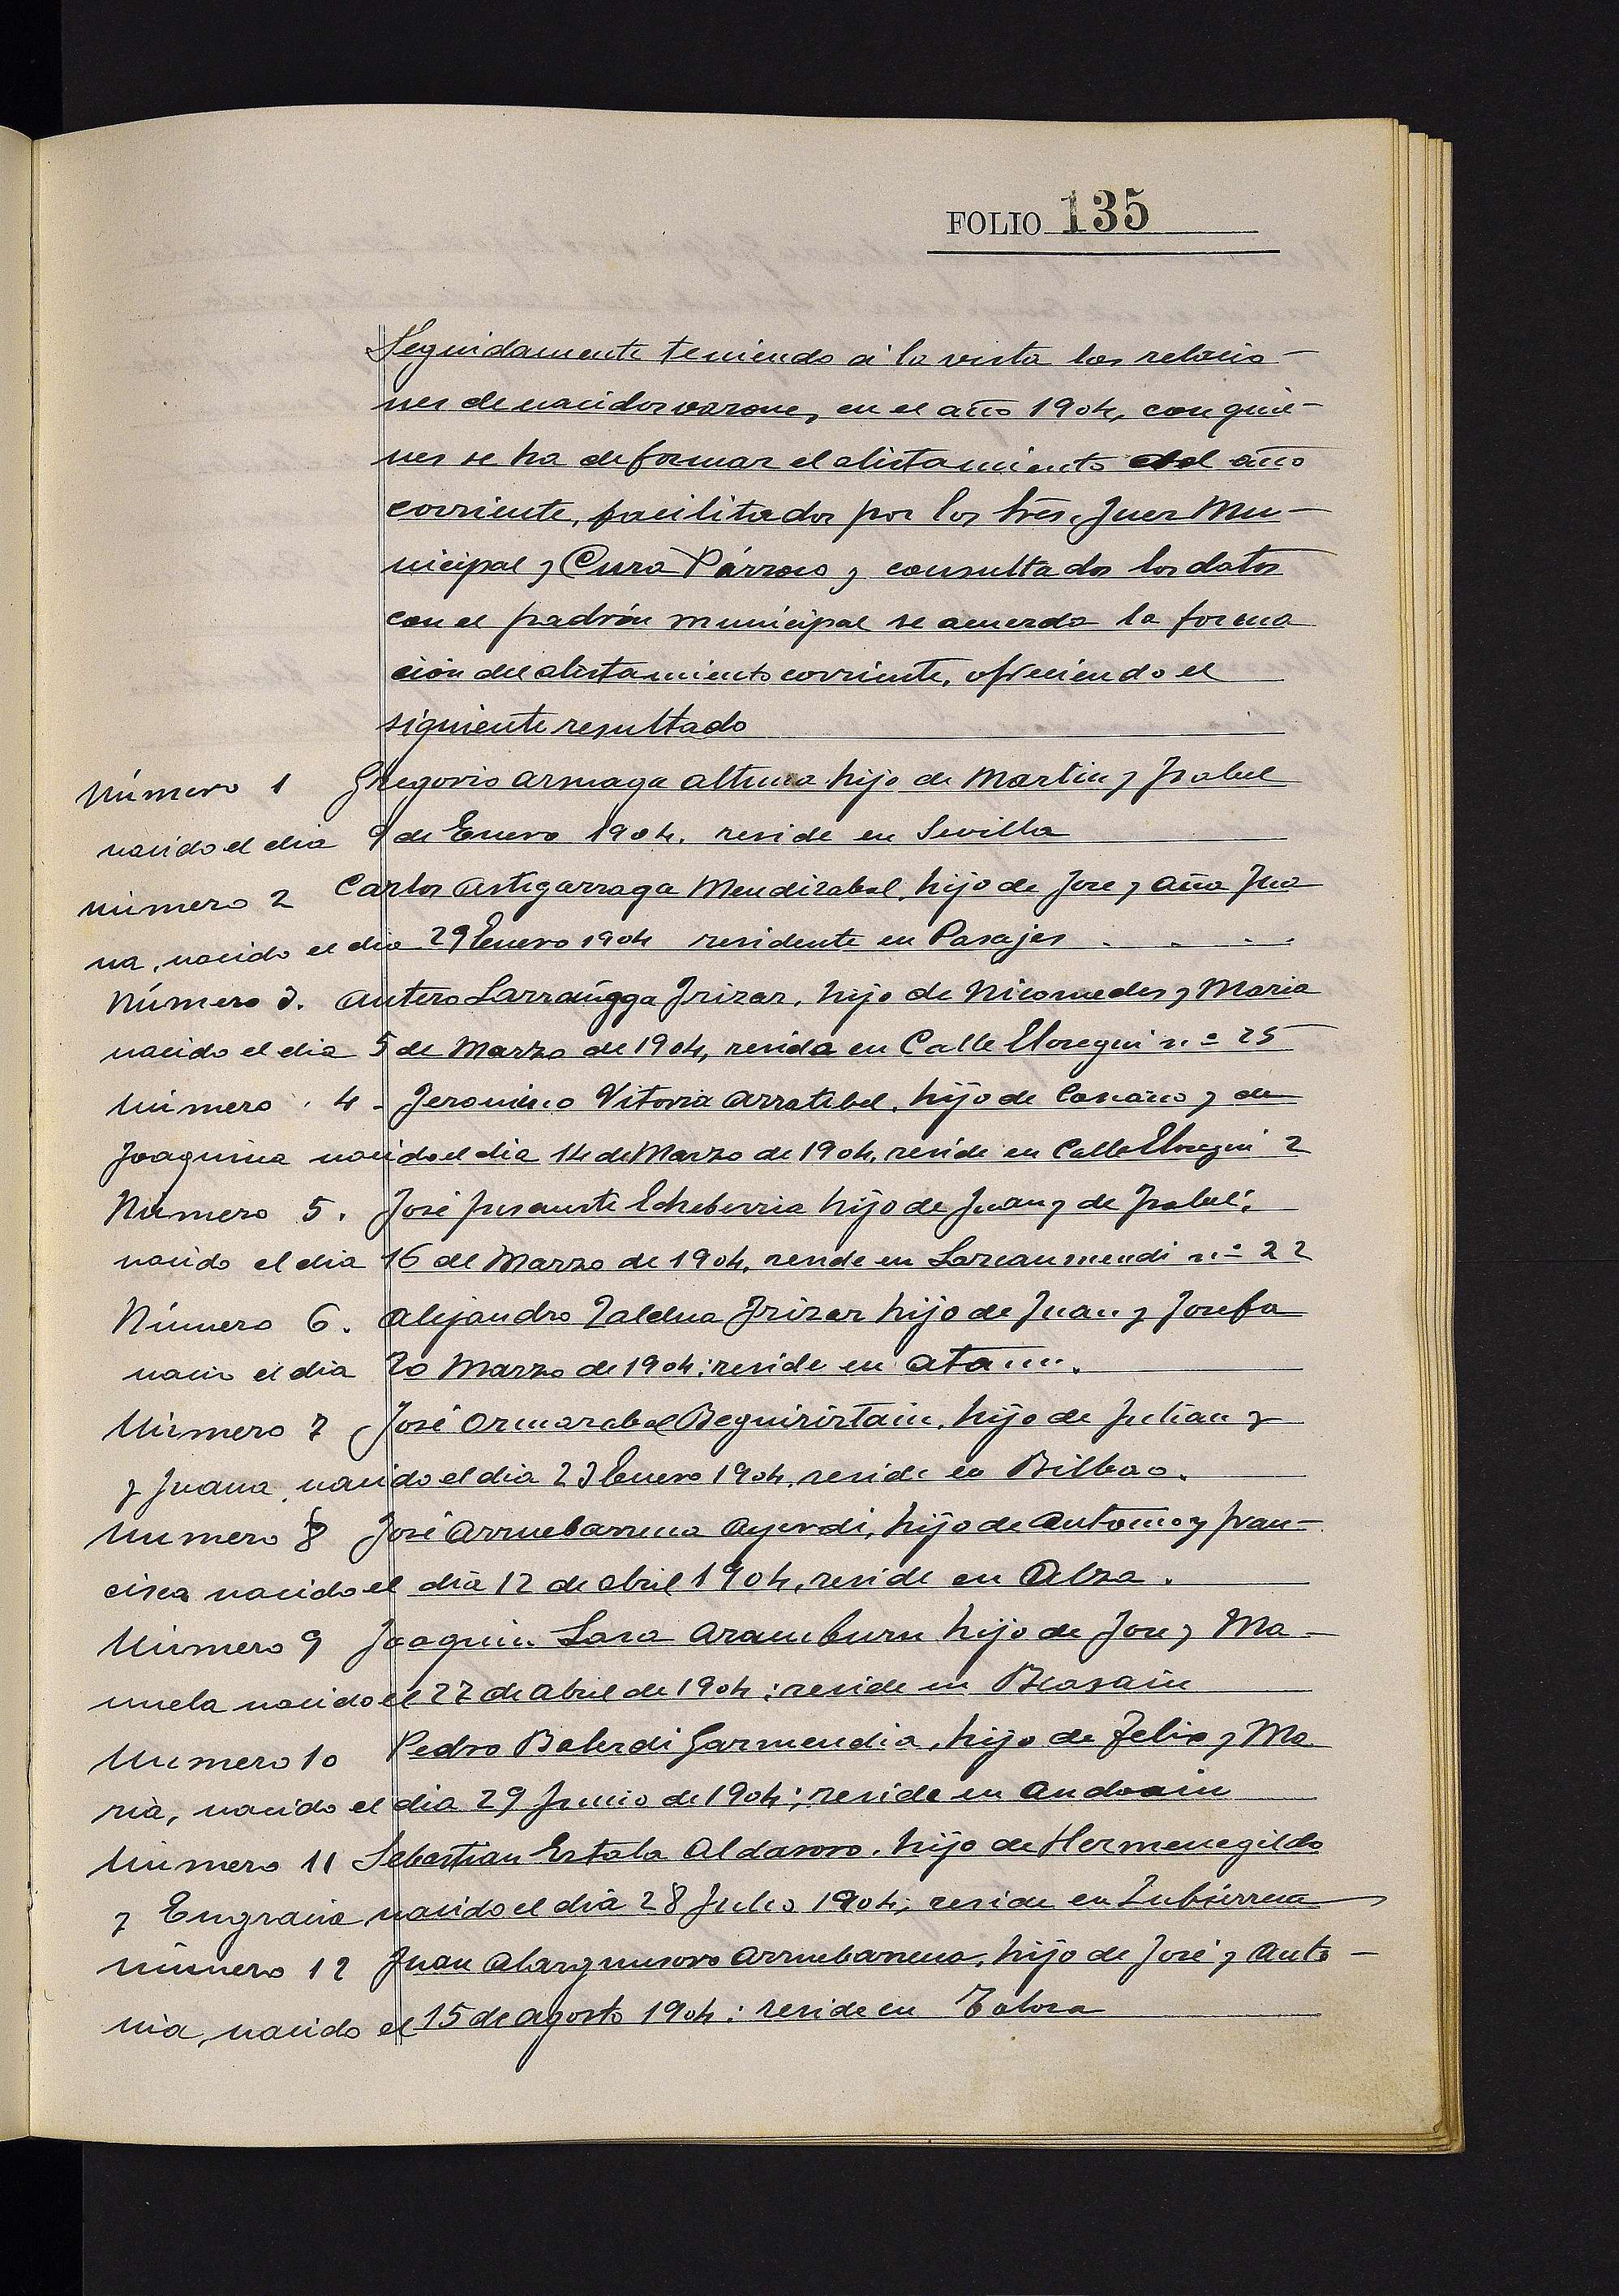 FOLIO 135
Seguidamente teniendo á la vista las relacio-
nes de nacidos varones, en el año 1904, con quie-
nes se ha de formar el alistamiento del año
corriente, facilitados por los Sres. Juez Mu-
nicipal y Cura Párroco y consultados los datos
con el padrón municipal se acuerda la forma
ción del alistamiento corriente, ofreciendo el
siguiente resultado
Número 1 Gregorio Arrnaga Altuna hijo de Martin y Isabel
nacido el dia 9 de Enero 1904. reside en Sevilla
número 2 Carlos Astigarraga Mendizabal, hijo de Jose y Aña Jua
na, nacido el dia 29 Enero 1904 residente en Pasajes
Número 3. Antero Larrañgga Irizar, hijo de Nicomedes y Maria
nacido el dia 5 de Marzo de 1904, resida en Calle Elosegui n.º 25
Número 4 - Jeronimo Vitoria Arratibel, hijo de Casiano y de
Joaquina nacido el dia 14 de Marzo de 1904, reside en Calle Elosegui 2
Número 5. José Insausti Echeberria hijo de Juan y de Isabel,
nacido el dia 16 de Marzo de 1904, reside en Lazcaumendi n.º 22
Número 6. Alejandro Zaldua Irizar hijo de Juan y Josefa
nacio el dia 20 Marzo de 1904: reside en Ataun.
Número 7 José Ormazabal Beguiristain, hijo de Julian y
y Juana, nacido el dia 23 Enero 1904, reside en Bilbao.
Numero 8 José Arruebarrena Ayerdi, hijo de Antonio y Fran-
cisca nacido el dia 12 de abril 1904, reside en Alza.
Número 9 Joaquin Lasa Aramburu hijo de Jose y Ma-
nuela nacido el 27 de abril de 1904: reside en Beasain
Numero 10 Pedro Balerdi Garmendia, hijo de Felix y Ma
ria, nacido el dia 29 Junio de 1904; reside en Andoain
Número 11 Sebastian Estala Aldasoro. hijo de Hermenegildo
y Engracia nacido el dia 28 Julio 1904; reside en Zubierrena
número 12 Juan Alargunsoro Arruebarrena, hijo de José y Anto-
nia, nacido el 15 de agosto 1904: reside en Tolosa